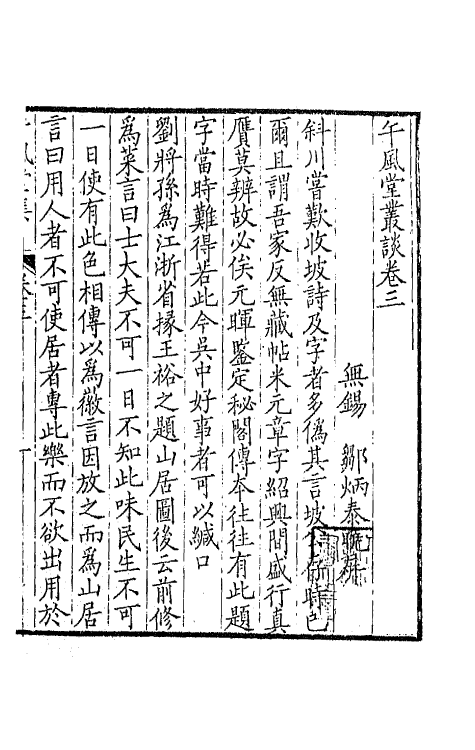 午風堂叢談卷三
無錫　鄒炳泰
斜川嘗歎收坡詩及字者多偽其言坡公所時已
爾且謂吾家反無藏帖米元章字紹興間盛行真
贋莫辨故必俟元暉鑒定秘閣傳本往往有此題
字當時難得若此今吳中好事者可以緘口
劉將孫為江浙省掾王裕之題山居圖後云前修
為菜言曰士大夫不可一日不知此味民生不可
一日使有此色相傳以為徽言因放之而為山居
言曰用人者不可使居者專此樂而不欲出用於
午風堂集
卷三